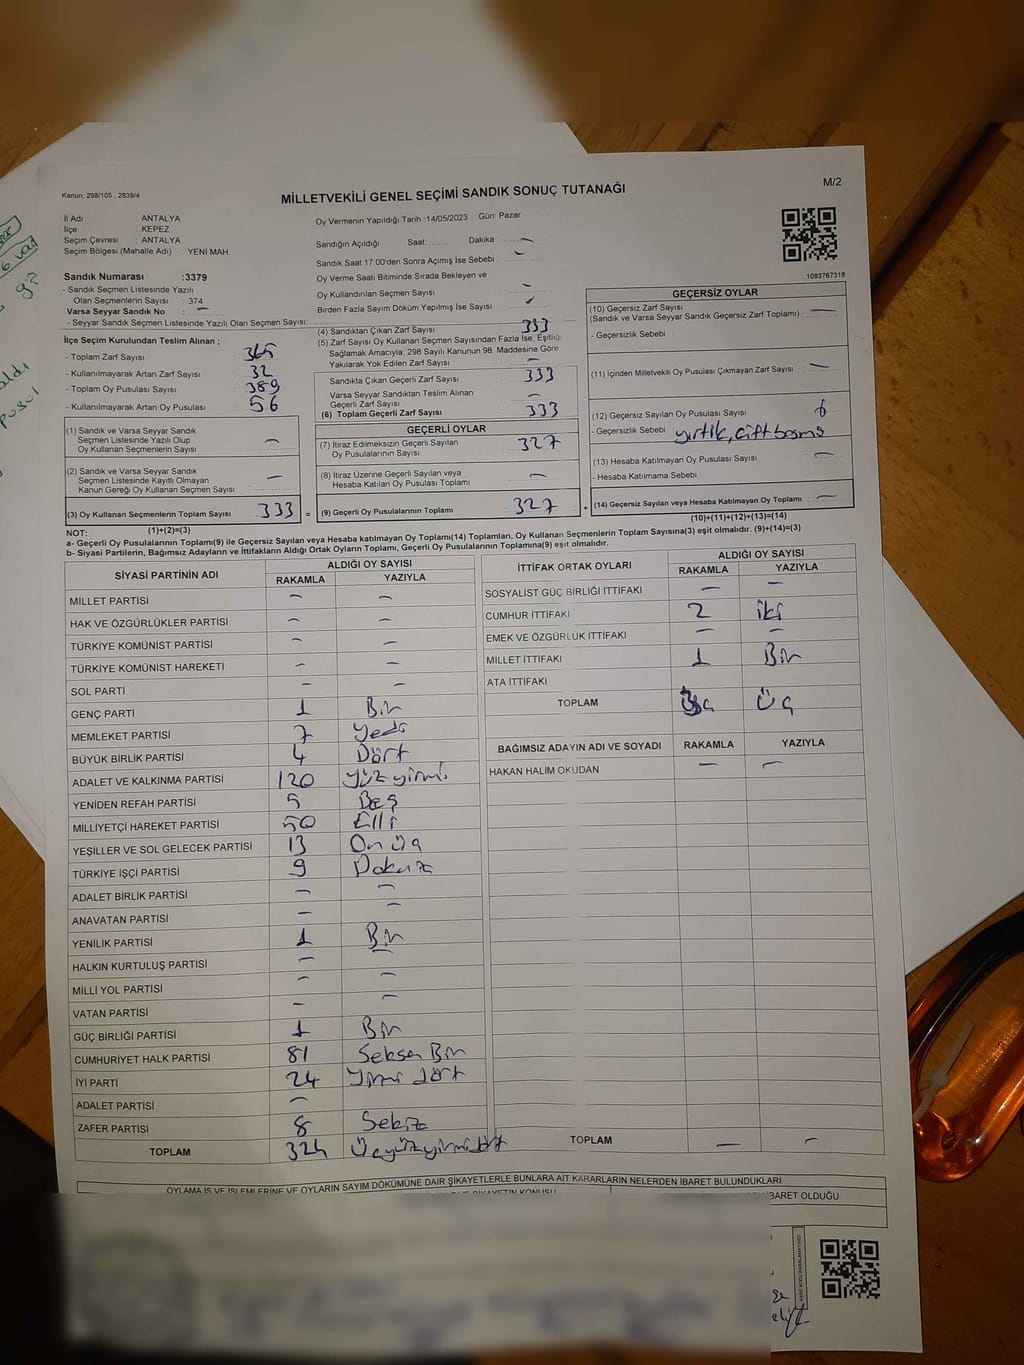 Kanun: 298/105 , 2839/4
MİLLETVEKİLİ GENEL SEÇİMİ SANDIK SONUÇ TUTANAĞI
M/2
İl Adı : ANTALYA
İlçe : KEPEZ
Seçim Çevresi : ANTALYA
Seçim Bölgesi (Mahalle Adı) : YENİ MAH.
Sandık Numarası :3379
- Sandık Seçmen Listesinde Yazılı
Olan Seçmenlerin Sayısı : 374
Varsa Seyyar Sandık No : –
- Seyyar Sandık Seçmen Listesinde Yazılı Olan Seçmen Sayısı:
Oy Vermenin Yapıldığı Tarih :14/05/2023 Gün: Pazar
Sandığın Açıldığı Saat: ....... Dakika : –
Sandık Saat 17:00'den Sonra Açımış İse Sebebi : –
Oy Verme Saati Bitiminde Sırada Bekleyen ve
Oy Kullandırılan Seçmen Sayısı –
Birden Fazla Sayım Döküm Yapılmış İse Sayısı :
1083767318
İlçe Seçim Kurulundan Teslim Alınan ;
- Toplam Zarf Sayısı 365
- Kullanılmayarak Artan Zarf Sayısı : 32
- Toplam Oy Pusulası Sayısı : 389
- Kullanılmayarak Artan Oy Pusulası : 56
(1) Sandık ve Varsa Seyyar Sandık
Seçmen Listesinde Yazılı Olup
Oy Kullanan Seçmenlerin Sayısı –
(2) Sandık ve Varsa Seyyar Sandık
Seçmen Listesinde Kayıtlı Olmayan
Kanun Gereği Oy Kullanan Seçmen Sayısı –
(3) Oy Kullanan Seçmenlerin Toplam Sayısı 333 =
(1)+(2)=(3)
(4) Sandıktan Çıkan Zarf Sayısı 333
(5) Zarf Sayısı Oy Kullanan Seçmen Sayısından Fazla İse, Eşitliği
Sağlamak Amacıyla; 298 Sayılı Kanunun 98. Maddesine Göre
Yakılarak Yok Edilen Zarf Sayısı –
Sandıkta Çıkan Geçerli Zarf Sayısı 333
Varsa Seyyar Sandıktan Teslim Alınan
Geçerli Zarf Sayısı –
(6) Toplam Geçerli Zarf Sayısı 333
GEÇERLİ OYLAR
(7) İtiraz Edilmeksizin Geçerli Sayılan
Oy Pusulalarının Sayısı 327
(8) İtiraz Üzerine Geçerli Sayılan veya
Hesaba Katılan Oy Pusulası Toplamı –
(9) Geçerli Oy Pusulalarının Toplamı 327 +
GEÇERSİZ OYLAR
(10) Geçersiz Zarf Sayısı
(Sandık ve Varsa Seyyar Sandık Geçersiz Zarf Toplamı) : –
- Geçersizlik Sebebi :
(11) İçinden Milletvekili Oy Pusulası Çıkmayan Zarf Sayısı –
(12) Geçersiz Sayılan Oy Pusulası Sayısı 6
- Geçersizlik Sebebi : yırtık, çift basma
(13) Hesaba Katılmayan Oy Pusulası Sayısı –
- Hesaba Katılmama Sebebi :
(14) Geçersiz Sayılan veya Hesaba Katılmayan Oy Toplamı –
(10)+(11)+(12)+(13)=(14)
NOT:
a- Geçerli Oy Pusulalarının Toplamı(9) ile Geçersiz Sayılan veya Hesaba katılmayan Oy Toplamı(14) Toplamları, Oy Kullanan Seçmenlerin Toplam Sayısına(3) eşit olmalıdır. (9)+(14)=(3)
b- Siyasi Partilerin, Bağımsız Adayların ve İttifakların Aldığı Ortak Oyların Toplamı, Geçerli Oy Pusulalarının Toplamına(9) eşit olmalıdır.
SİYASİ PARTİNİN ADI ALDIĞI OY SAYISI
RAKAMLA YAZIYLA
MİLLET PARTİSİ – –
HAK VE ÖZGÜRLÜKLER PARTİSİ – –
TÜRKİYE KOMÜNİST PARTİSİ – –
TÜRKİYE KOMÜNİST HAREKETİ – –
SOL PARTİ – –
GENÇ PARTİ 1 Bir
MEMLEKET PARTİSİ 7 Yedi
BÜYÜK BİRLİK PARTİSİ 4 Dört
ADALET VE KALKINMA PARTİSİ 120 Yüz yirmi
YENİDEN REFAH PARTİSİ 5 Beş
MİLLİYETÇİ HAREKET PARTİSİ 50 Elli
YEŞİLLER VE SOL GELECEK PARTİSİ 13 On üç
TÜRKİYE İŞÇİ PARTİSİ 9 Dokuz
ADALET BİRLİK PARTİSİ – –
ANAVATAN PARTİSİ – –
YENİLİK PARTİSİ 1 Bir
HALKIN KURTULUŞ PARTİSİ – –
MİLLİ YOL PARTİSİ – –
VATAN PARTİSİ – –
GÜÇ BİRLİĞİ PARTİSİ 1 Bir
CUMHURİYET HALK PARTİSİ 81 Seksen Bir
İYİ PARTİ 24 Yirmi dört
ADALET PARTİSİ –
ZAFER PARTİSİ 8 Sekiz
TOPLAM 324 Üçyüzyirmidört
İTTİFAK ORTAK OYLARI ALDIĞI OY SAYISI
RAKAMLA YAZIYLA
SOSYALİST GÜÇ BİRLİĞİ İTTİFAKI – –
CUMHUR İTTİFAKI 2 iki
EMEK VE ÖZGÜRLÜK İTTİFAKI – –
MİLLET İTTİFAKI 1 Bir
ATA İTTİFAKI
TOPLAM Üç
BAĞIMSIZ ADAYIN ADI VE SOYADI RAKAMLA YAZIYLA
HAKAN HALİM OKUDAN – –
TOPLAM – –
OYLAMA İŞ VE İŞLEMLERİNE VE OYLARIN SAYIM DÖKÜMÜNE DAİR ŞİKAYETLERLE BUNLARA AİT KARARLARIN NELERDEN İBARET BULUNDUKLARI
İBARET OLDUĞU